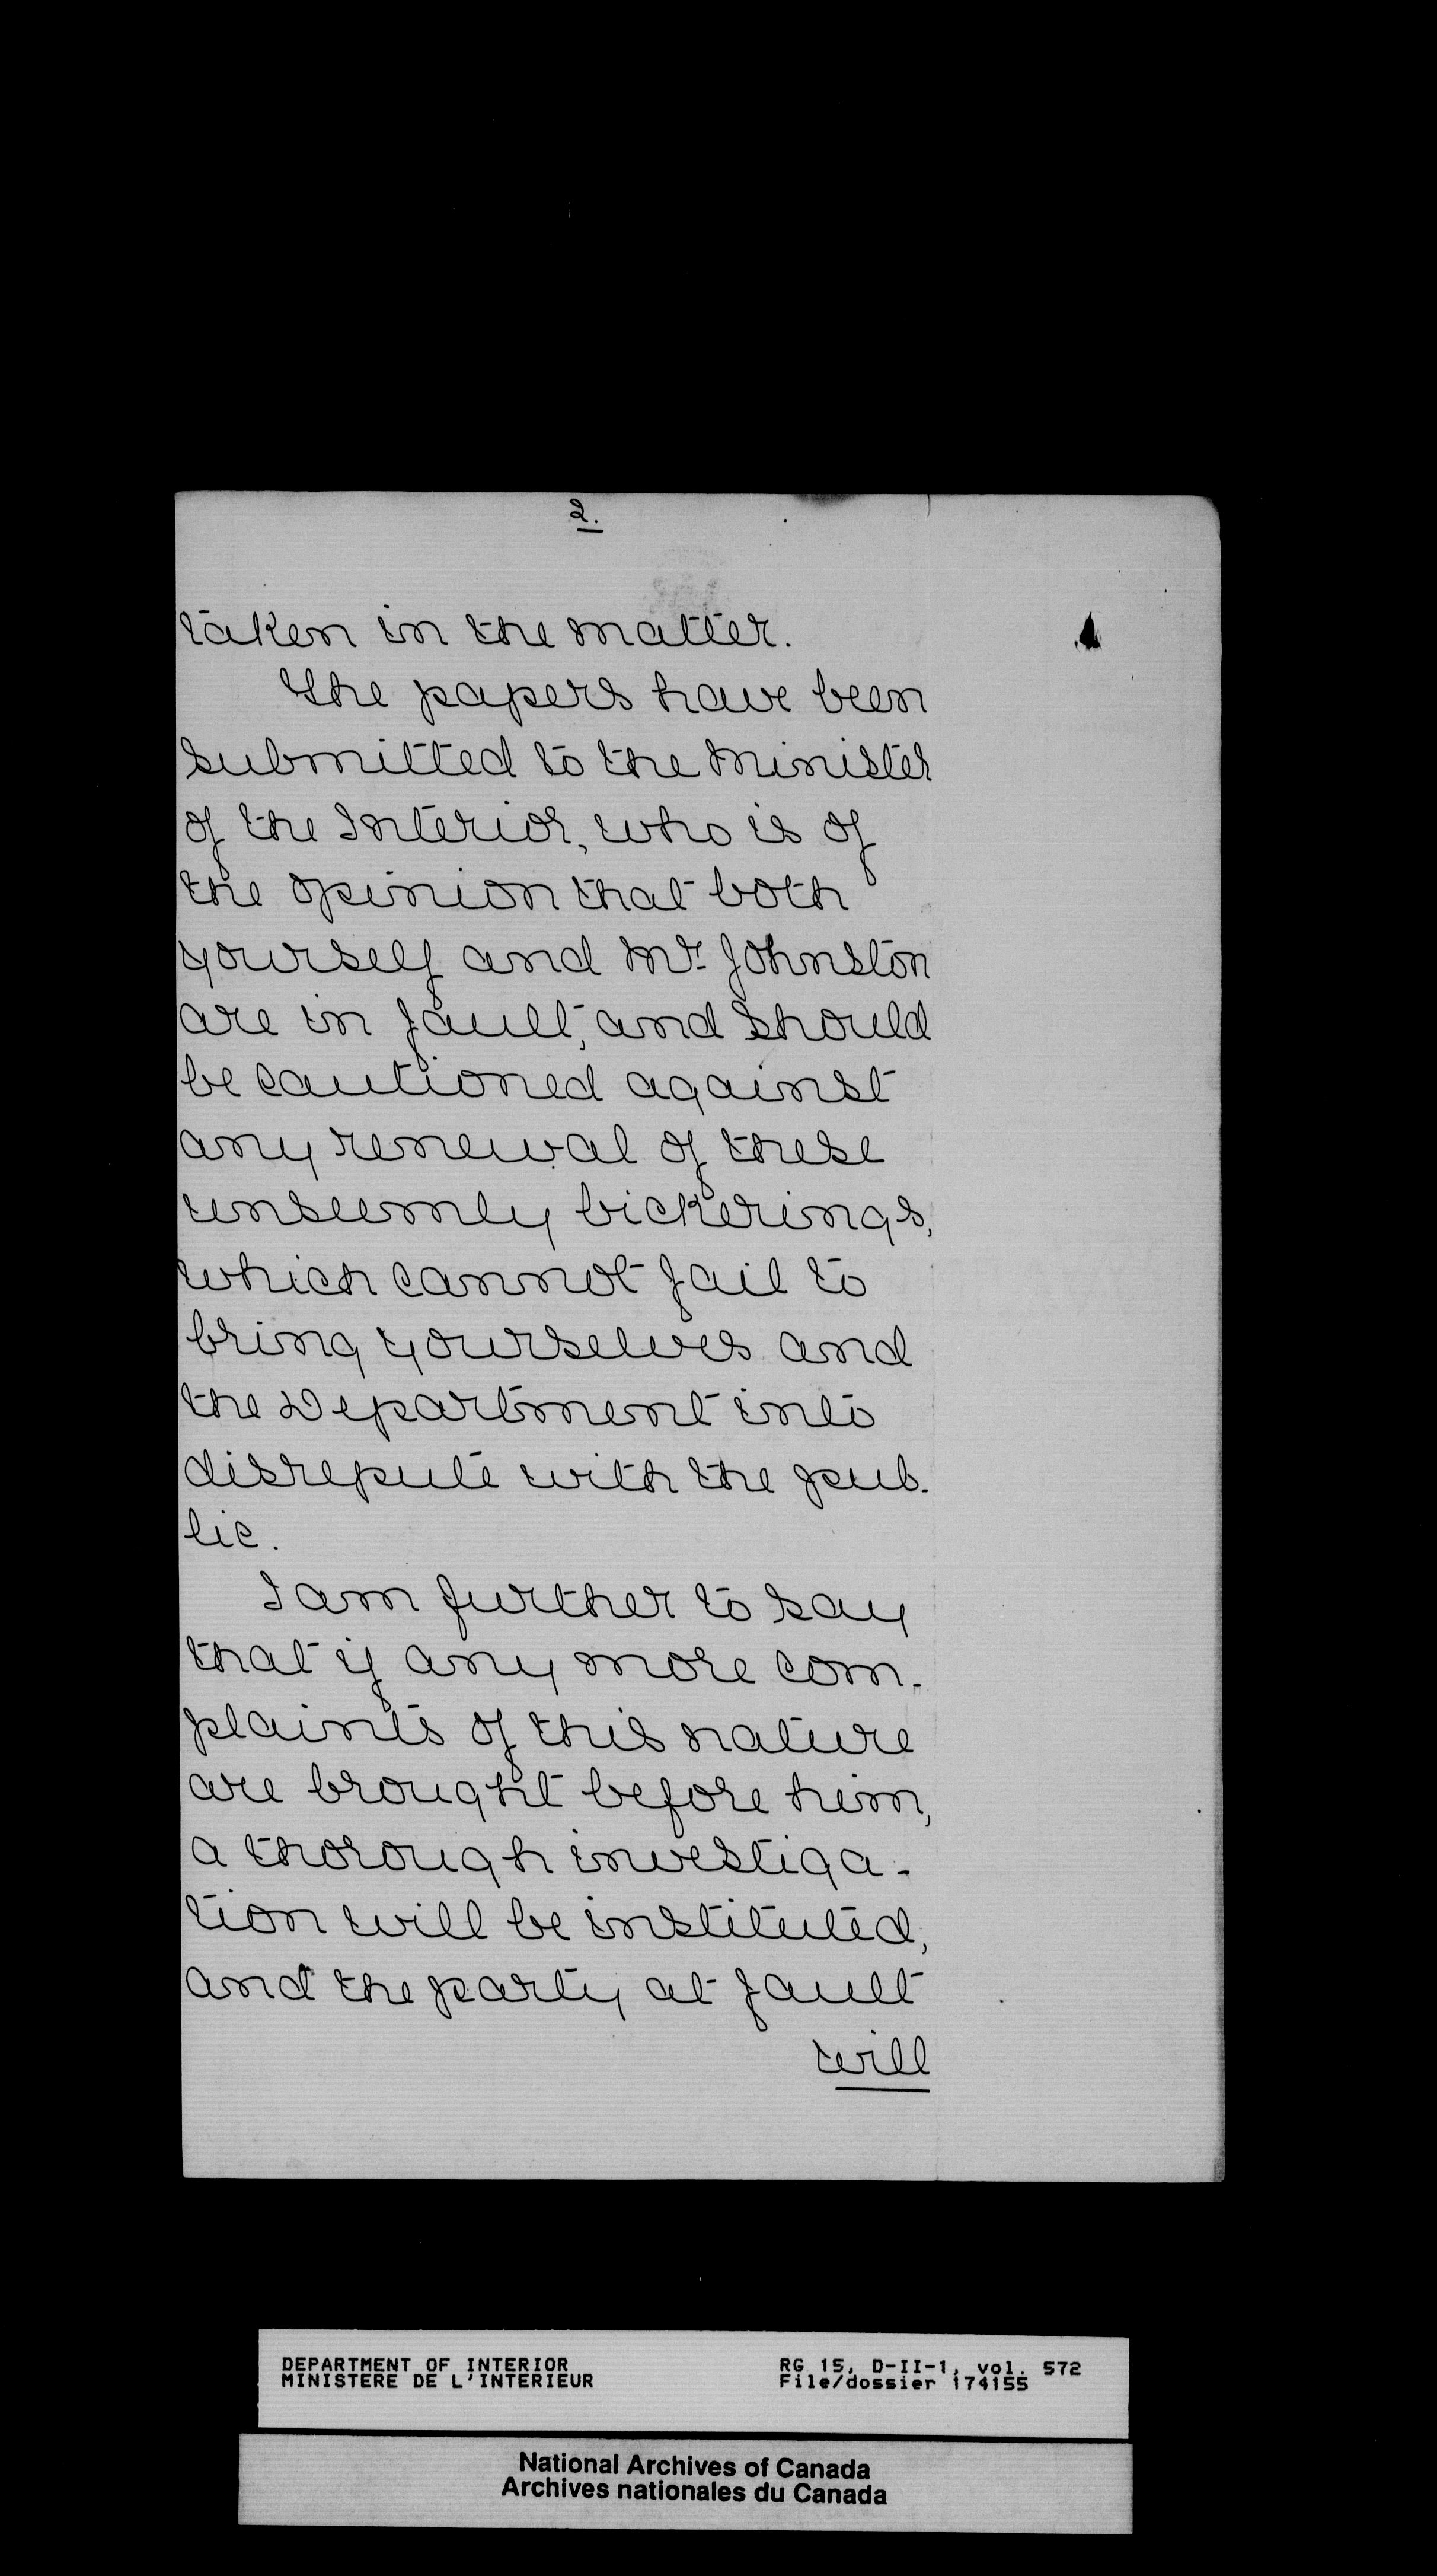 2.
taken in the matter.
The papers have been
submitted to the Minister
of the Interior, who is of
the opinion that both
yourself and Mr. Johnston
are in fault, and should
be cautioned against
any renewal of these
unseemly bickerings,
which cannot fail to
bring yourselves and
the Department into
disrepute with the pub-
lic.
I am further to say
that if any more com-
plaints of this nature
are brought before him,
a thorough investiga-
tion will be instituted,
and the party at fault
will
DEPARTMENT OF INTERIOR
MINISTERE DE L'INTERIEUR
RG 15, D-II-1, vol. 572
File/dossier 174155
National Archives of Canada
Archives nationales du Canada